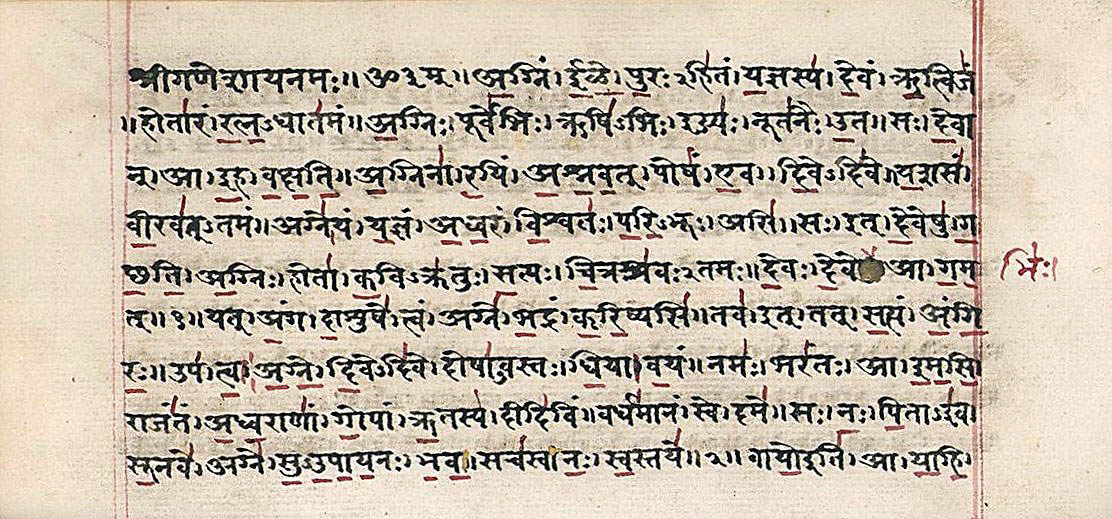 श्रीगणेशायनमः॥ॐ३म्॥अग्निं।ईळे।पुरःऽहितं।यज्ञस्य।देवं।ऋत्विजं
॥होतारं।रत्नऽधातमं॥अग्निः।पूर्वेभिः।ऋषिऽभिः।ईड्यः।नूतनैः।उत॥सः।देवा
न्।आ।इह।वक्षति॥अग्निना।रयिं।अश्नवत्।पोषं।एव।दिवेऽदिवे॥यशसं।
वीरवत्ऽतमं॥अग्ने।यं।यज्ञं।अध्वरं।विश्वतः।परिऽभूः।असि॥सः।इत्।देवेषु।ग
छति।अग्निः।होता।कविऽक्रतुः।सत्यः।चित्रश्रवःऽतमः॥देवः।देवे आ।गम
भिः।
त्॥१॥यत्।अंग।दाशुषे।त्वं।अग्ने।भद्रं।करिष्यसि॥तव।इत्।तत्।सत्यं।अंगि
रः॥उप।त्वा।अग्ने।दिवेऽदिवे।दोषाऽवस्तः।धिया।वयं॥नमः।भरंतः।आ।इमसि।
राजंतं।अध्वराणां।गोपां।ऋतस्य।दीदिविं॥वर्धमानं।स्वे।दमे॥सः।नः।पिताऽइव।
सूनवे।अग्ने।सुऽउपायनः।भव।सचस्व।नः।स्वस्तये॥२॥वायोइति।आ।याहि।